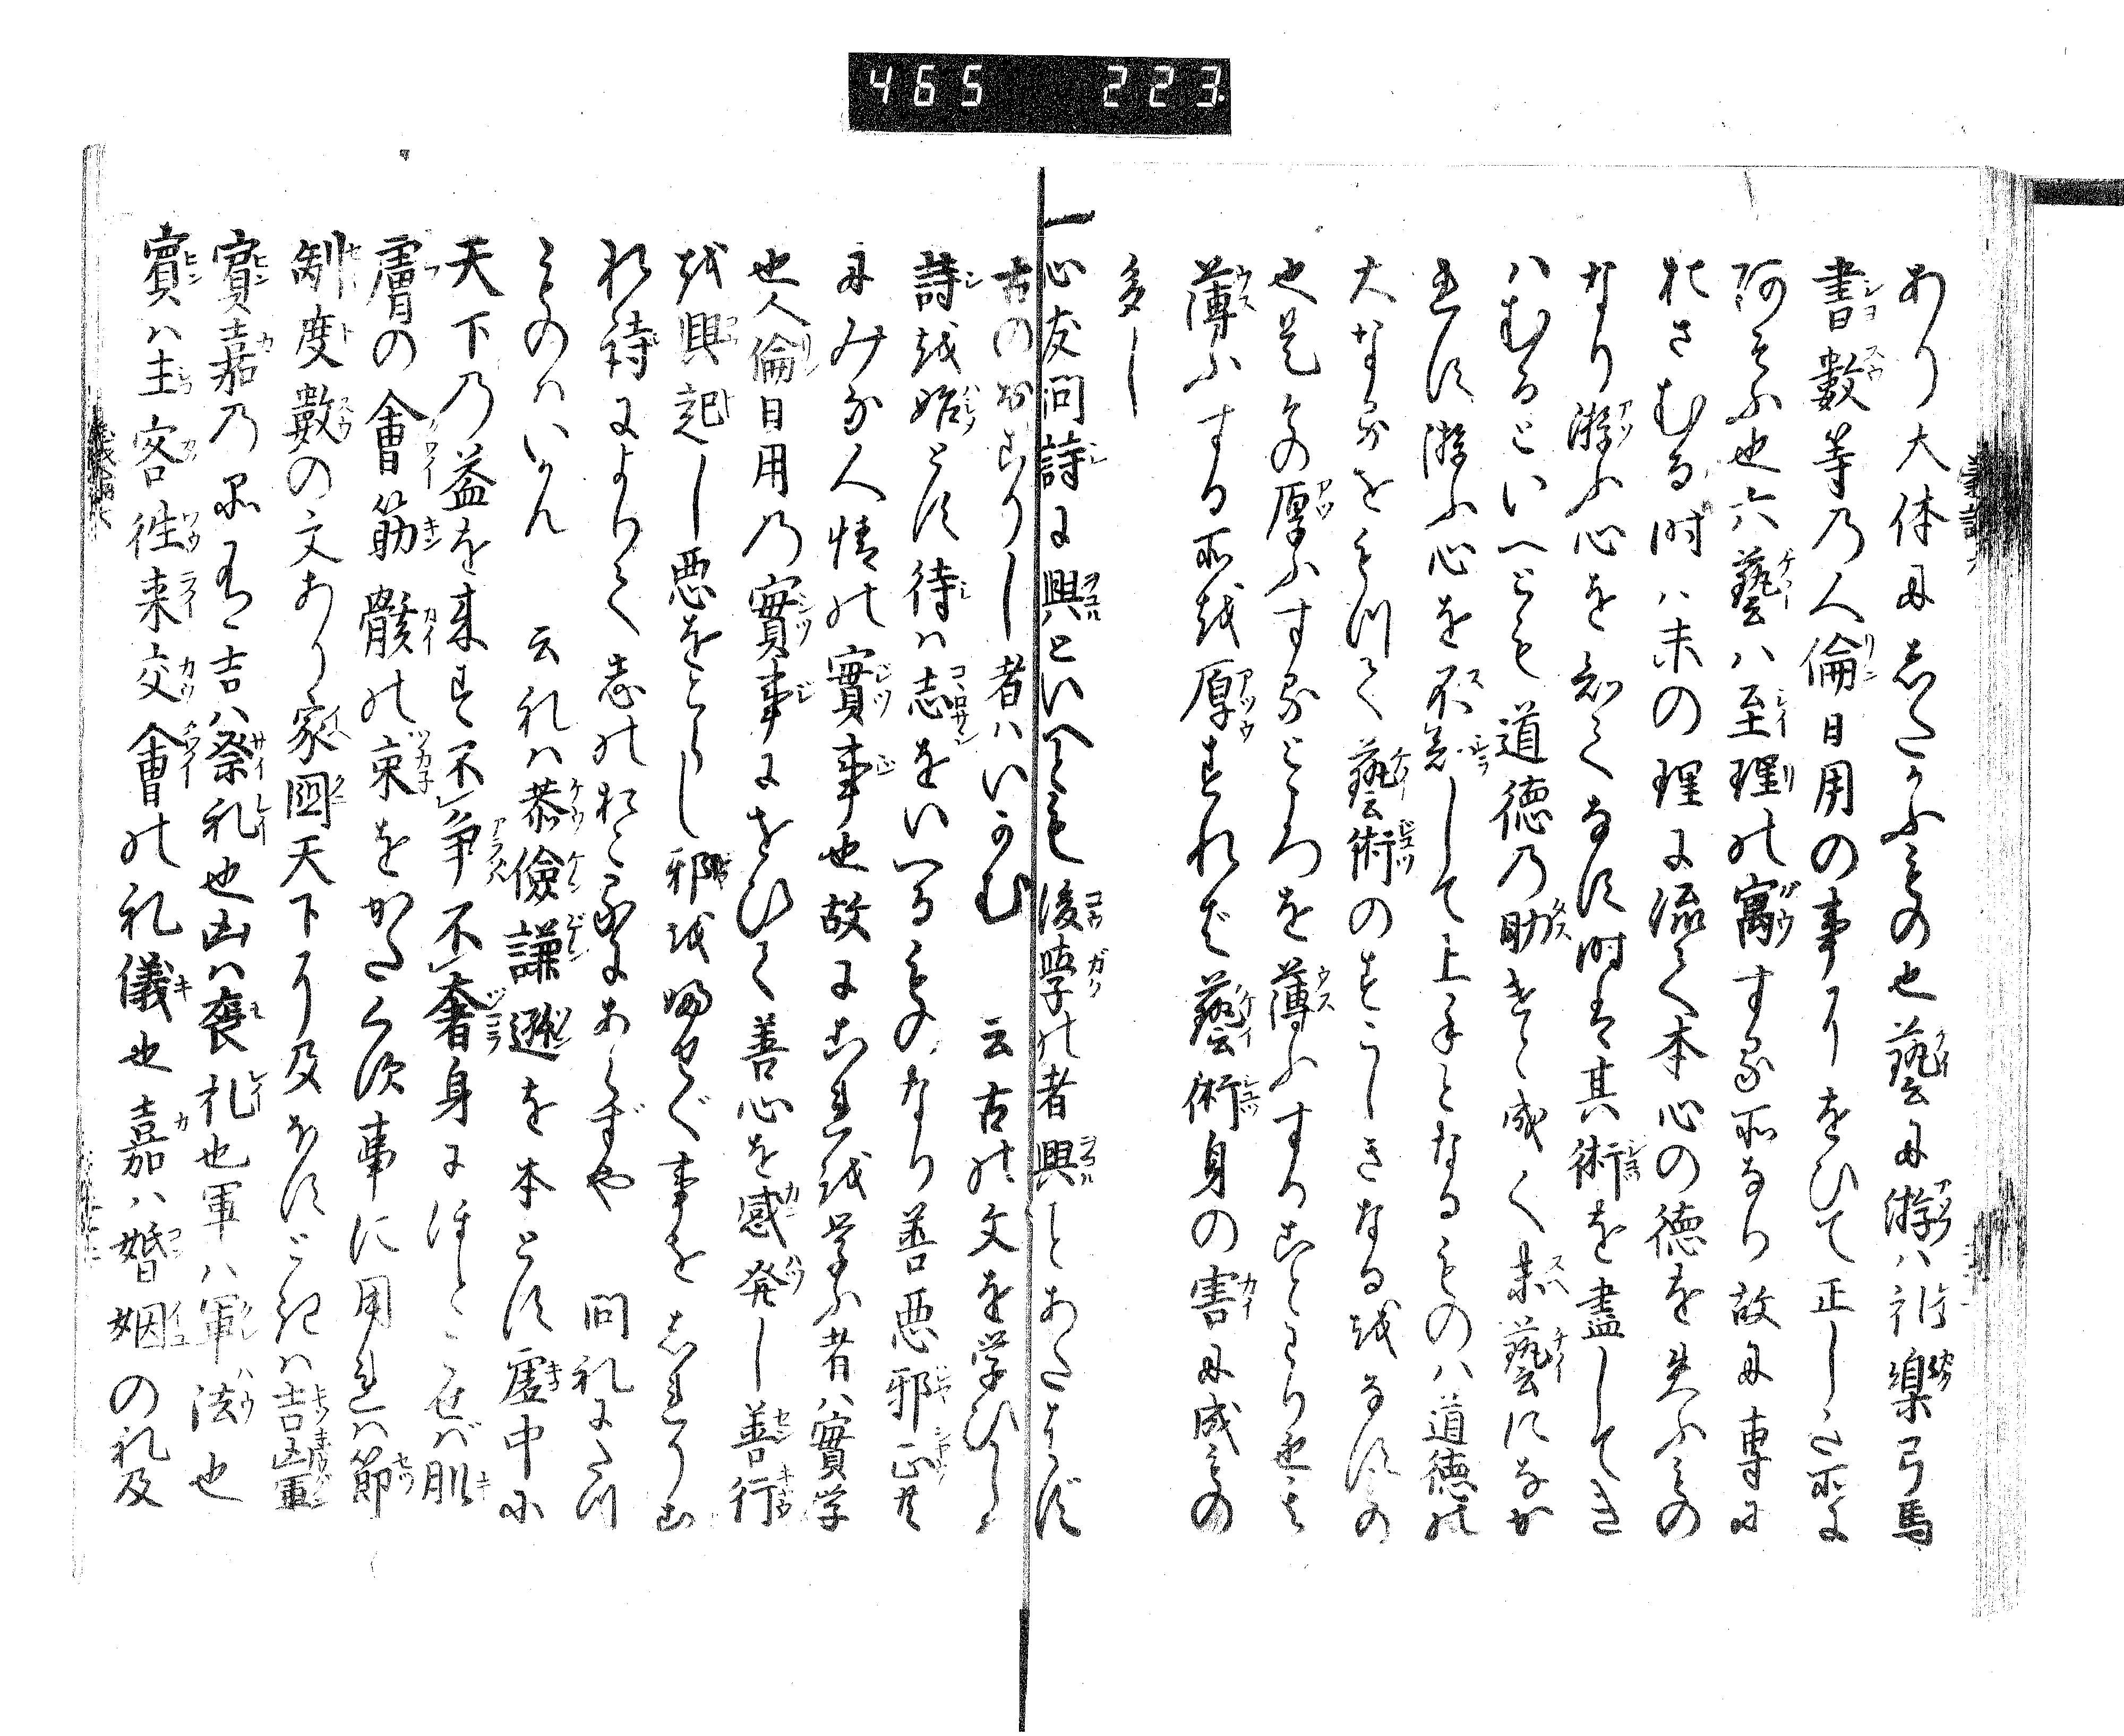 465 223
あり大体にしたかふもの也藝に游ハ礼樂弓馬
書數等の人倫日用の事にをひて正しき所に
あそふ也六藝ハ至理の寓する所なり故に専に
おさむる時ハ末の理に流て本心の徳を失ふもの
なり游ふ心を知てなす時は其術を盡してき
ハむるといへとも道徳の助けと成て末藝になか
れす游ふ心を不忘して上手となるものハ道徳の
大なるをもつて藝術のすこしきなるをなすの
也是その厚ふするところを薄ふすることわり也
薄ふする所を厚すれば藝術身の害に成もの
多し
一心友問詩に興といへとも後學の者興ことあたはず
古のおこりし者ハいかむ 云古の文を学ひし
詩を始とす待ハ志をいへるものなり善悪邪正共
にみな人情の實事也故にこれを学ふ者ハ實学
也人倫日用の實事にをひて善心を感発し善行
を興起し悪をこらし邪を ふせぐ事をしれり
れ詩によりて志のおこるにあらずや 問礼にたつ
ものハいかん 云礼ハ恭儉謙遜を本とす虚中に
天下の益を来す不争不奢身にほとこせば肌
膚の會筋骸の束をかたくす事に用れハ節
制度數の文あり家國天下に及ほすときハ吉凶軍
賓嘉の品有吉ハ祭礼也凶ハ喪礼也軍ハ軍法也
賓ハ主客往来交會の礼儀也嘉ハ婚姻の礼及